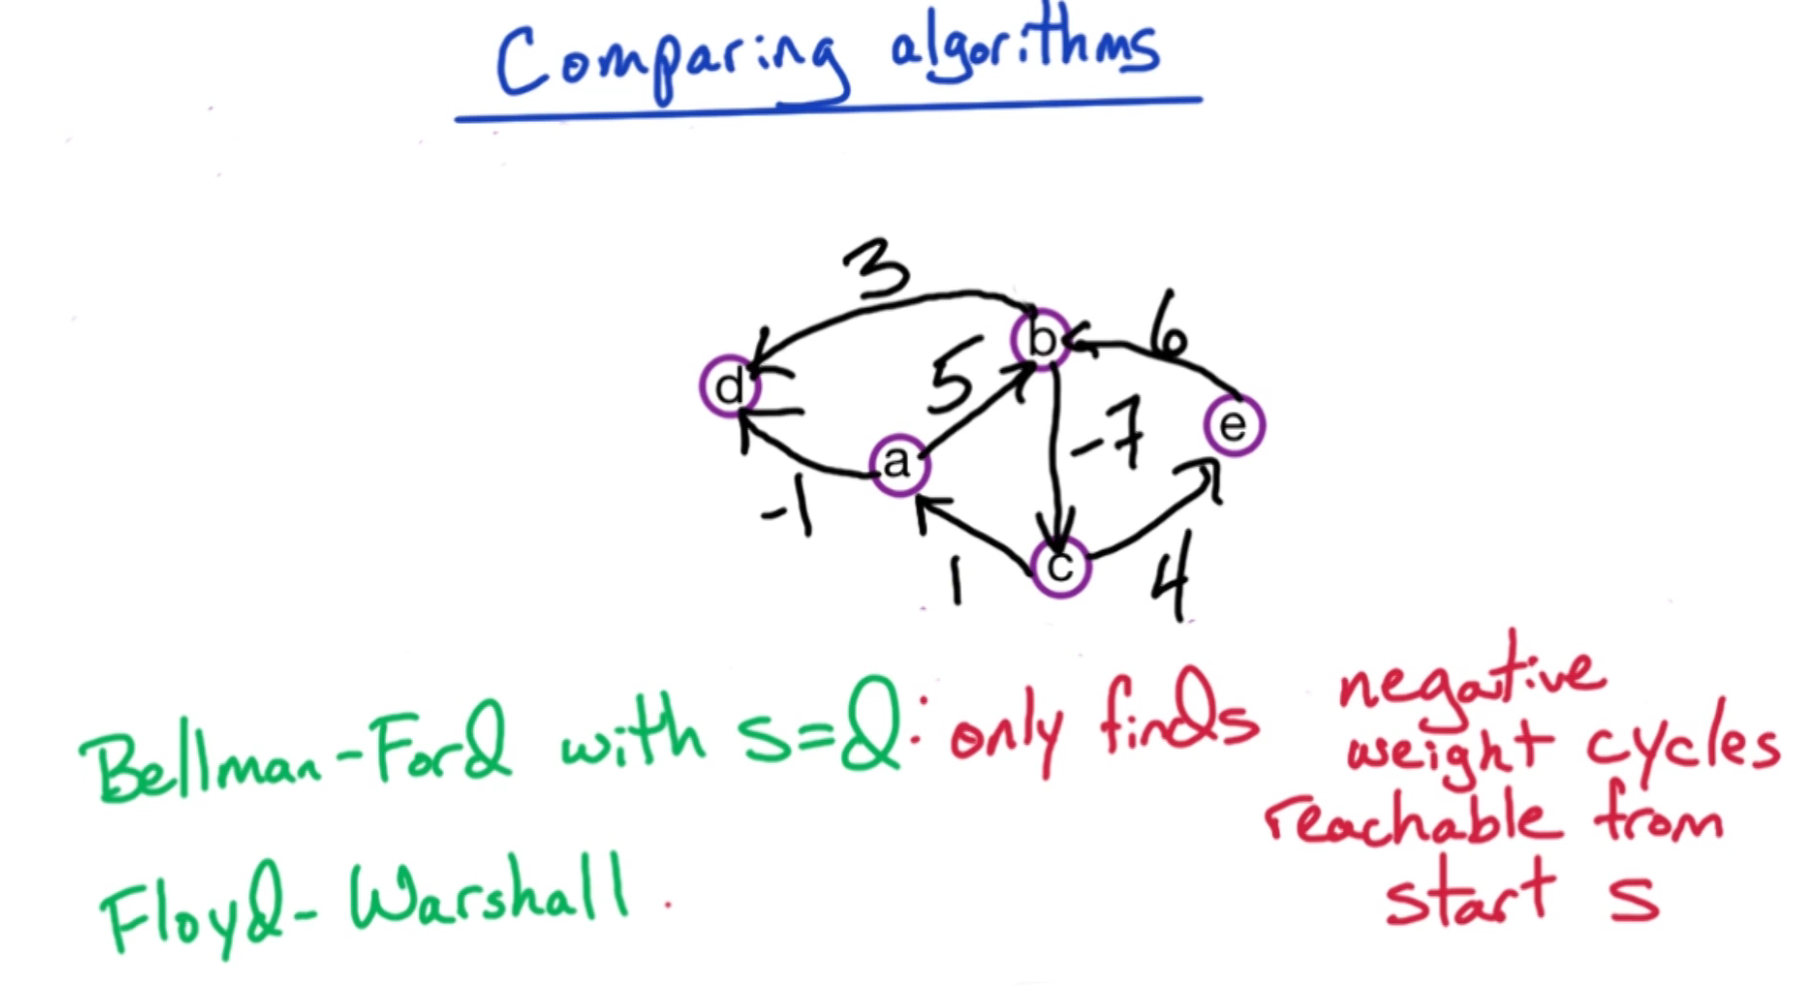 Comparing algorithms
3
6
b
d
5
-7
e
a
-1
c
1
4
Bellman-Ford with s=d: only finds negative
weight cycles
reachable from
start s
Floyd-Warshall